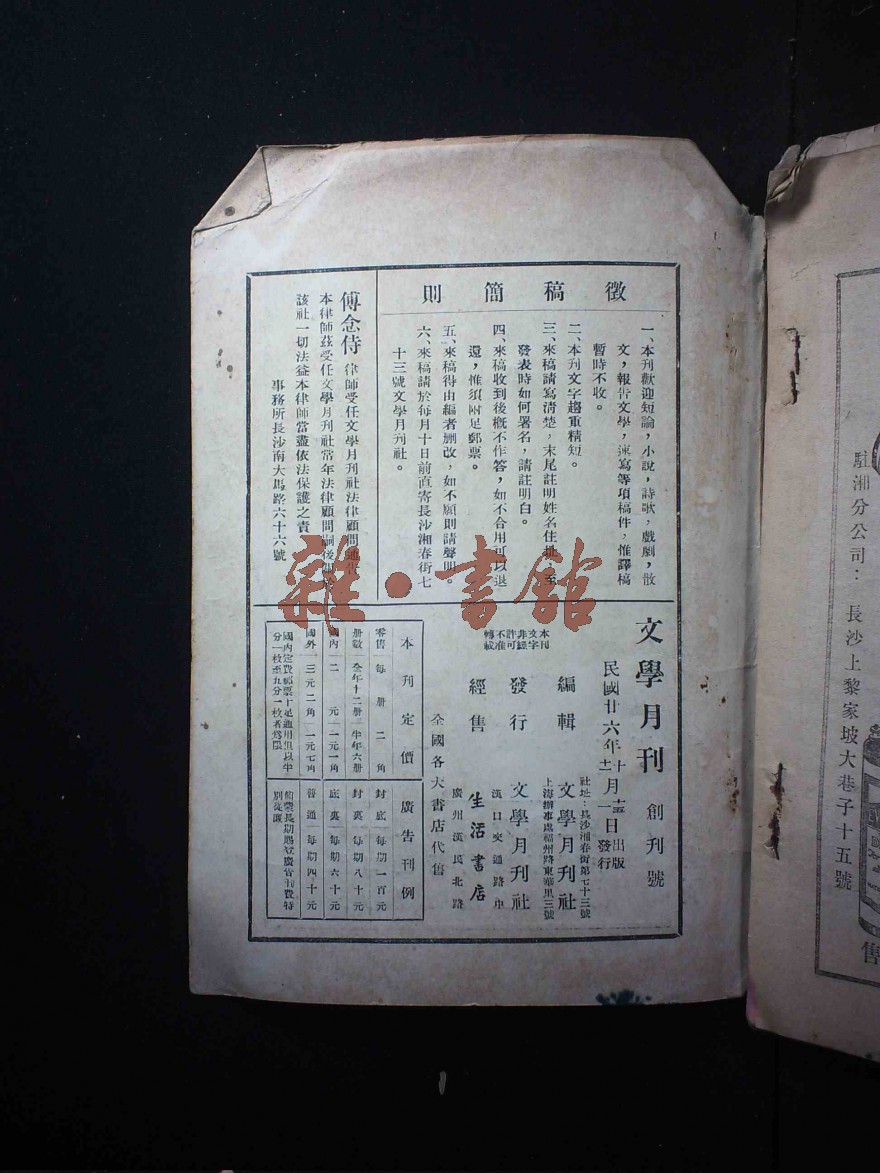 徵稿簡則
一、本刊歡迎短論，小說，詩歌，戲劇，散
文，報告文學，速寫等項稿件，惟譯稿
暫時不收。
二、本刊文字趨重精短。
三、來稿請寫清楚，末尾註明姓名住址，至
發表時如何署名，請註明白。
四、來稿收到後概不作答，如不合用可以退
還，惟須附足郵票。
五、來稿得由編者刪改，如不願則請聲明。
六、來稿請於每月十日前直寄長沙湘春街七
十三號文學月刊社。
傅念侍律師受任文學月刊社法律顧問通告
本律師茲受任文學月刊社常年法律顧問嗣後關於
該社一切法益本律師當盡依法保護之責
事務所長沙南大馬路六十六號
文學月刊 創刊號
民國廿六年 月 日 出版 發行
本刊文字非經許可不准轉載
編輯 文學月刊社
社址：長沙湘春街第七十三號
上海辦事處福州路東華里三號
發行 文學月刊社
經售 生活書店
漢口交通路
廣州漢民北路
全國各大書店代售
本刊定價
零售 每冊二角
冊數 全年十二冊 半年六冊
國內 二元 一元一角
國外 三元二角 一元七角
國內定費郵票十足通用但以半
分一枚至五分一枚者為限
廣告刊例
封底 每期一百元
封裏 每期八十元
底裏 每期六十元
普通 每期四十元
長期 廣告刊費特
別從廉
雜·書館
駐湘分公司：長沙上黎家坡大巷子十五號
售